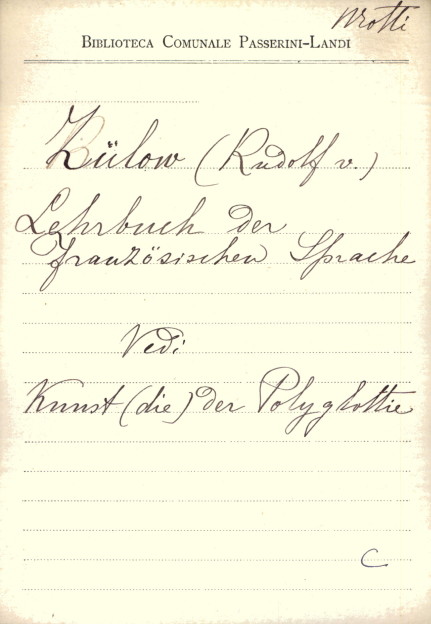 Wrotti
BIBLIOTECA COMUNALE PASSERINI-LANDI
Zülow (Rudolf v.)
Lehrbuch der
französischen Sprache
Vedi
Kunst (die) der Polyglottie
C